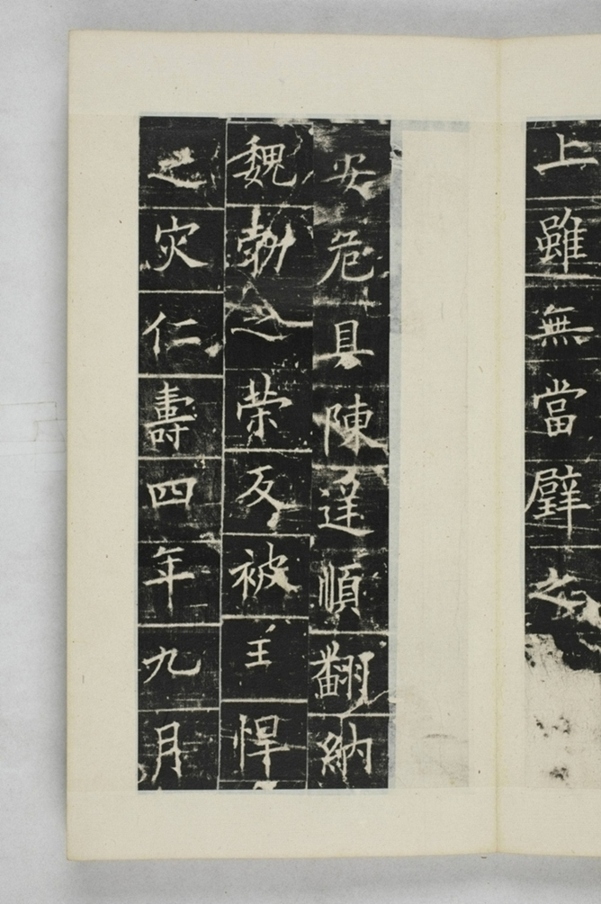 上雖無當璧之
安危具陳逆順翻納
魏勃之榮反被王悍
之灾仁壽四年九月